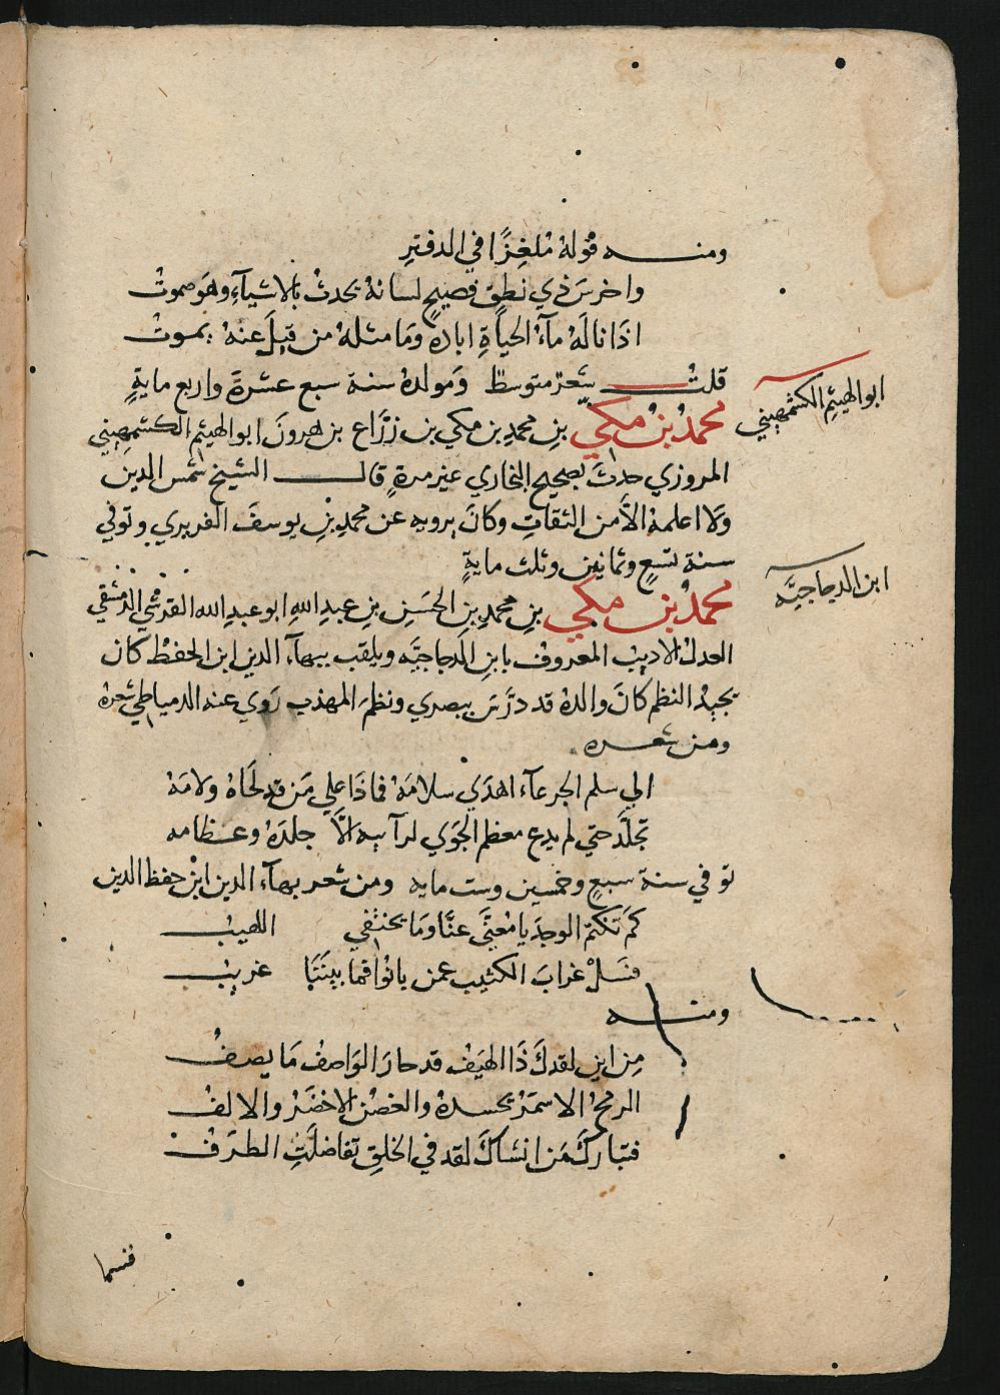 ومنــــه قوله مُلغِزًا في الدفترِ
واخرسَ ذي نطقٍ فصيحٍ لسانهُ يحدثُ بالاشيآءِ وهوَ صموتُ
اذَا نالَهُ مآءُ الحياةِ ابادهُ ومَا مثلهُ من قبلَ عنهُ يموتُ
قلتُ شعرٌ متوسطٌ ومولدهُ سنة سبع عشرةَ واربع مايةٍ
ابو الهيثم الكشمهيني
محمدُ بنُ مكي بنِ محمدِ بن مكي بن زرَّاع بن هرونَ ابو الهيثم الكشمهيني
المروزي حدثَ بصحيح البخاري غير مرةٍ قالــ الشيخ شمس الدين
ولا اعلمهُ الاَّ من الثقاتِ وكانَ يرويه عن محمدِ بنِ يوسفَ الفربري وتوفي
سنة تسعٍ وثمانين وثلث مايةٍ
ابن الدجاجيَّه
محمدُ بن مكي بنِ محمدِ بنِ الحسَنِ بنِ عبدِ اللهِ ابو عبدِ الله القرشي الدمشقي
العدلُ الاديبُ المعروف بابنِ الدجاجيَّه ويلقب ببهآء الدين ابن الحفظ كان
يجيدُ النظم كانَ والدهُ قد درَّسَ ببصري ونظمَ المهذب رَوي عنه الدمياطي شعرهُ
ومن شعــره
الي سلم الجرعآء اهدَي سلامَهُ فماذَا علي مَن قد لحَاهُ ولامَهُ
تجلَّد حتي لم يدع معظم الجوَي لرآئيه الاَّ جلدَهُ وعــظامه
توفي سنة سبعٍ وخمسين وست مايه ومن شعر بهآء الدين ابْن حفظ الدين
كمَ تكتم الوجدَ يا مُعَنَّي عنَّا ومَا يختفي اللهيبُ
فسَلْ غرابَ الكثيب عمن بانُوا فما بينَنَا غريبُ
ومنــه
مِن اين لقدكَ ذَا الهيَفُ قد حارَ الوَاصفُ مَا يصفُ
الرمحُ الاسمرُ يحسدهُ والغصن الاخضَرُ والالفُ
فتباركَ مَن انشاكَ لقد في الخلقِ تفاضلَتِ الطرَفُ
فنسما